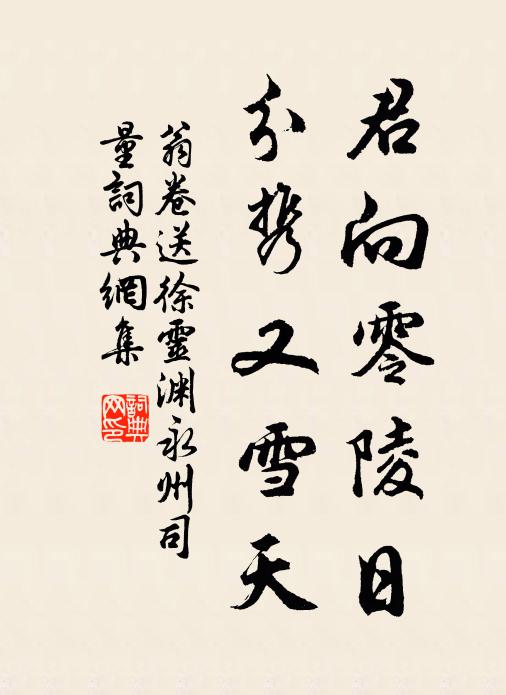 君向零陵日
分携又雪天
翁卷送徐靈渊永州司
量詞典網集
詞典
网印